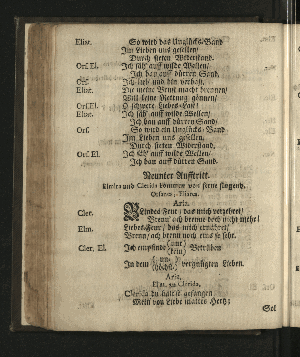 Eliat. So wird das Unglücks-Band
Im Lieben uns gesellen/
Durch steten Widerstand.
Ors. El. Ich säh' auff wilde Wellen/
Ich bau auff dürren Sand.
Ors. Ich lieb und bin verhaßt,
Eliat. Die meine Brust macht brennen/
Will keine Rettung gönnen/
Ors. El. O schwere Liebes-Last!
Eliat. Ich säh' auff wilde Wellen/
Ich bau auff dürren Sand/
Ors. So wird ein Unglücks-Band
Im Lieben uns gesellen,
Durch steten Widerstand,
Ors. El. Ich säh' auff wilde Wellen/
Ich bau auff dürren Sand.
Neunter Aufftritt.
Elmira und Clerida kommen von ferne singend,
Orsanes, Eliates,
Aria.
Cler. Blindes Feur/ das mich verzehret/
Brenn' ach brenne doch nicht mehr!
Elm. Liebes-Feur/ das mich ernähret/
Brenn/ ach brenn noch eins so sehr.
Cler. El. Ich empfinde
Betrüben
In dem
vergnügten Lieben.
Aria.
Elat. zu Clerida,
Clerida du hältst gefangen
Mein von Liebe mattes Hertz;